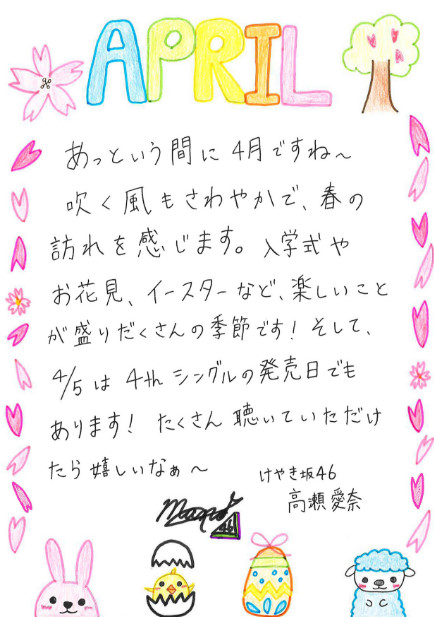 APRIL
あっという間に4月ですね〜
吹く風もさわやかで、春の
訪れを感じます。入学式や
お花見、イースターなど、楽しいこと
が盛りだくさんの季節です！そして、
4/5は4thシングルの発売日でも
あります！たくさん聴いていただけ
たら嬉しいなぁ〜
けやき坂46
高瀬愛奈
46